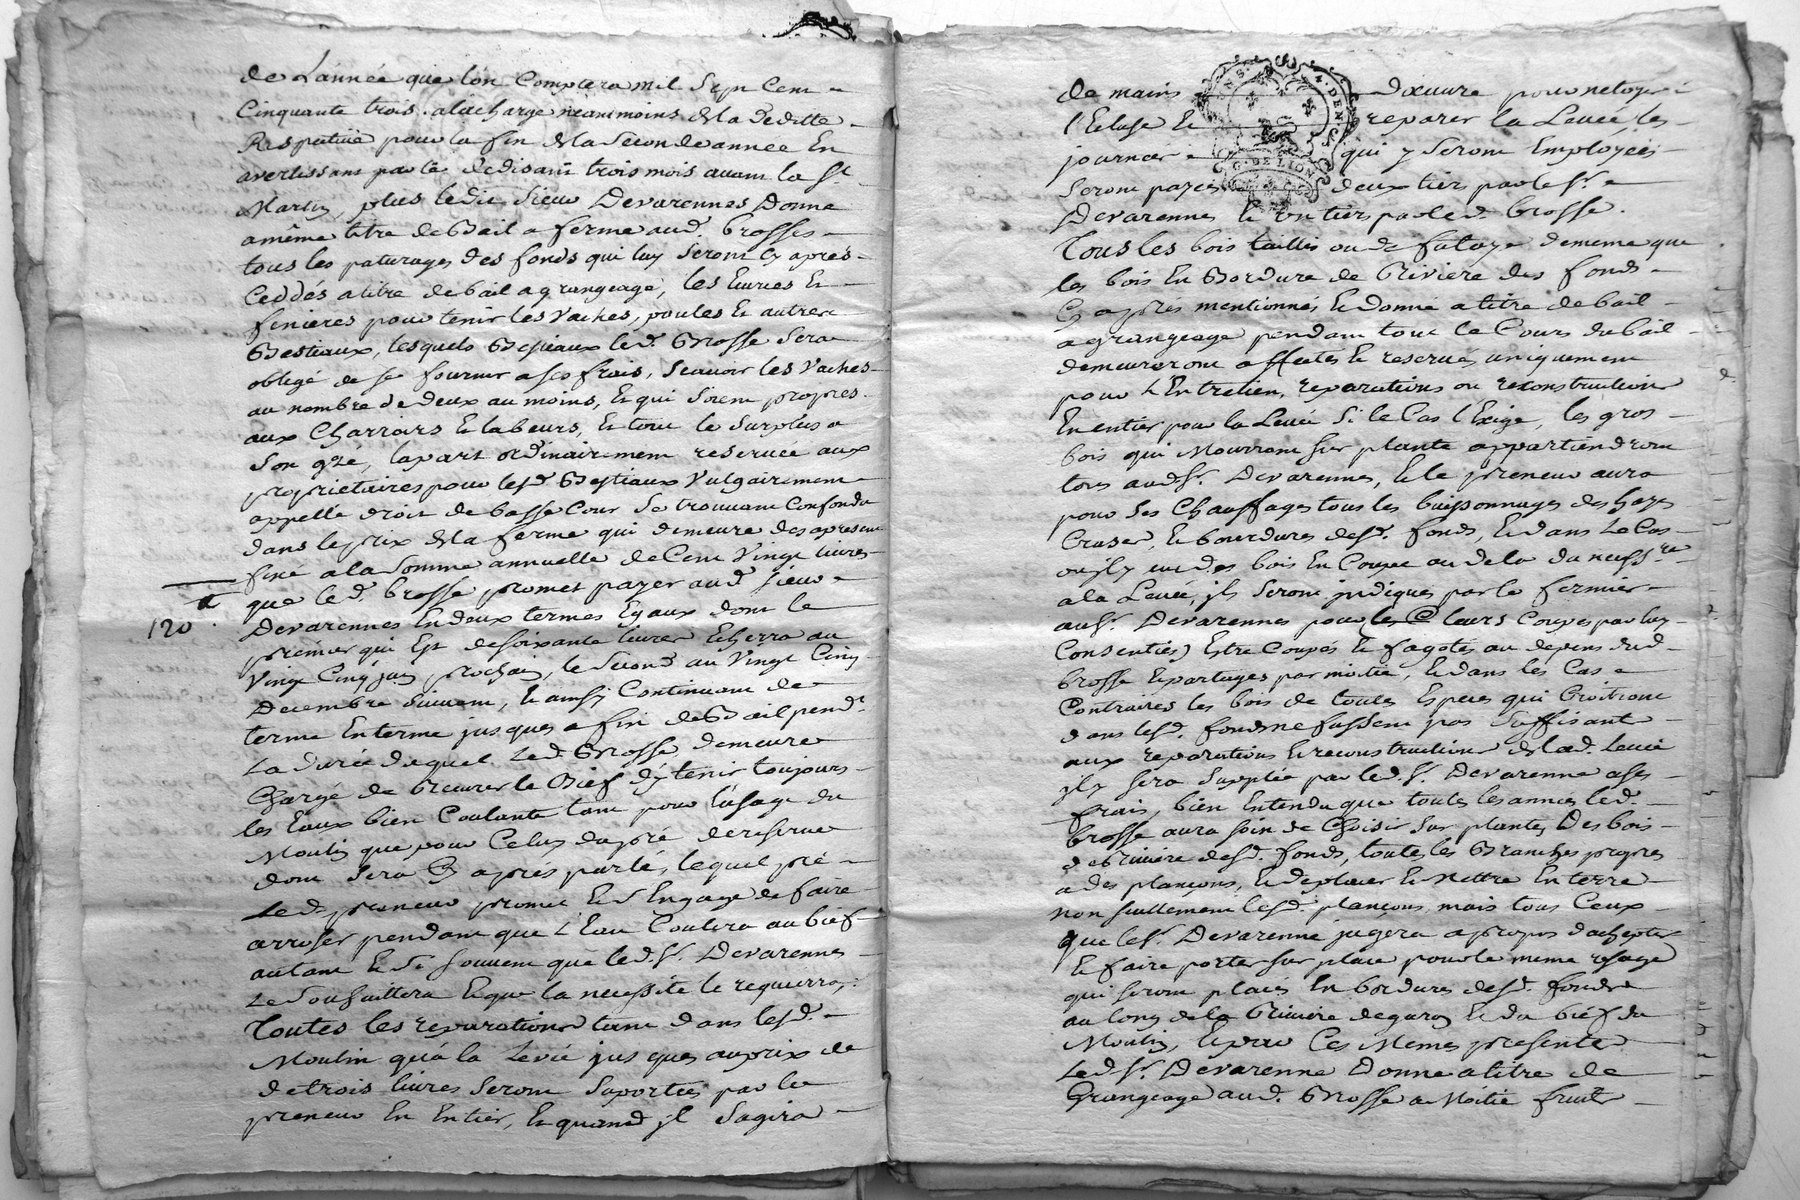 de L'année que l'on Comptera mil Sept Cent
Cinquante trois. alacharge neantmoins de la deditte
Respective pour la fin de la Seconde année En
avertissant par le dedisant trois mois avant la St.
Martin, plus ledit Sieur Devarennes Donne
a même titre de Bail a ferme aud. brosses
tous les paturages des fonds qui luy Seront Cy aprés
Ceddés a titre de bail a grangeage, les Ecuries Et
fenieres pour tenir les Vaches, poules Et autres
Bestiaux, lesquels Bestiaux led. Brosse Sera
obligé de se fournir a ses frais, Scavoir les Vaches
au nombre de deux au moins, Et qui Soient propres
aux Charrois Et labeurs, Et tout le Surplus a
Son gré, la part ordinairement reservee aux
proprietaires pour lesd. Bestiaux Vulgairement
appellé droit de basse Cour Se trouvant Confondu
dans le prix de la ferme qui demeure des apresent
fixé a la Somme annuelle de Cent Vingt livres
que led. brosse promet payer aud. Sieur
120 ll.
Devarennes En deux termes Egaux dont le
premier qui Est de soixante livres Echerra au
Vingt Cinq juin prochain, le Second au Vingt Cinq
Decembre Suivant, Et ainsy Continuant de
terme En terme jusques a fin de Bail pendt.
La durée duquel Led. Brosse demeure
Chargé de recurer le Bief d'y tenir toujours
les Eaux bien Coulante tant pour l'usage du
Moulin que pour Celuy du pré de reserve
dont Sera Cy aprés parlé, lequel pré
Led. preneur promet Et S'Engage de faire
arroser pendant que l'Eau Coulera au bief
autant Et Si Souvent que led. Sr. Devarennes
Le Souhaittera Et que la necessité le requierra,
Toutes les reparations tant dans lesd.
Moulin qu'a la Levée jusques au prix de
de trois livres Seront Suportées par le
preneur En Entier, Et quand jl S'agira
de mains d'oeuvre pour netoyer
l'Ecluse Et reparer la Levée les
journées qui y Seront Employées
Seront payées deux tiers par le Sr.
Devarennes Et un tiers par led. brosse.
Tous les bois taillis ou de futaye de meme que
les bois En Bordure de Riviere des fonds
Cy aprés mentionnés Et donné a titre de bail
a grangeage pendant tout le Cours du bail
demeureront affectés Et reservés uniquement
pour l'Entretien, reparations ou reconstruction
En entier pour la Levée Si le Cas l'Exige, les gros
bois qui Mourront Sur plante appartiendront
tous aud Sr. Devarennes, Et le preneur aura
pour Ses Chauffages tous les buissonnages des hayes
Et bourdures desd. fonds, Et dans le Cas
ou jl y eut des bois En Coupe au dela du necessre.
a la Levée, jls Seront jndiqués par le fermier
au Sr. Devarennes pour leurs Coupes par luy
Consenties) Estre Coupés Et fagotés au depens dud.
brosse Et partagés par moitié, Et dans les Cas
Contraires les bois de toutes Especes qui Croitront
dans lesd. fonds ne fussent pas Suffisant
aux reparations Et reconstructions de lad. Levée
jl y Sera Supplée par led. Sr. Devarenne a Ses
frais, bien Entendu que toutes les années led.
brosse aura soin de Choisir Sur plantes Des bois
de Riviere desd. fonds, toutes les Branches propres
a des plançons, Et deplacer Et Mettre En terre
non seullement lesd. plançons, mais tous Ceux
que le Sr. Devarenne jugera a propos d'achepter
Et faire porter Sur place pour le meme usage
qui Seront placés En bordures desd. fonds
au long de la Riviere de garon Et du bief du
Moulin, Et par Ces Memes presentes
Led. Sr. Devarenne Donne a titre de
Grangeage aud. Brosse a Moitié fruits